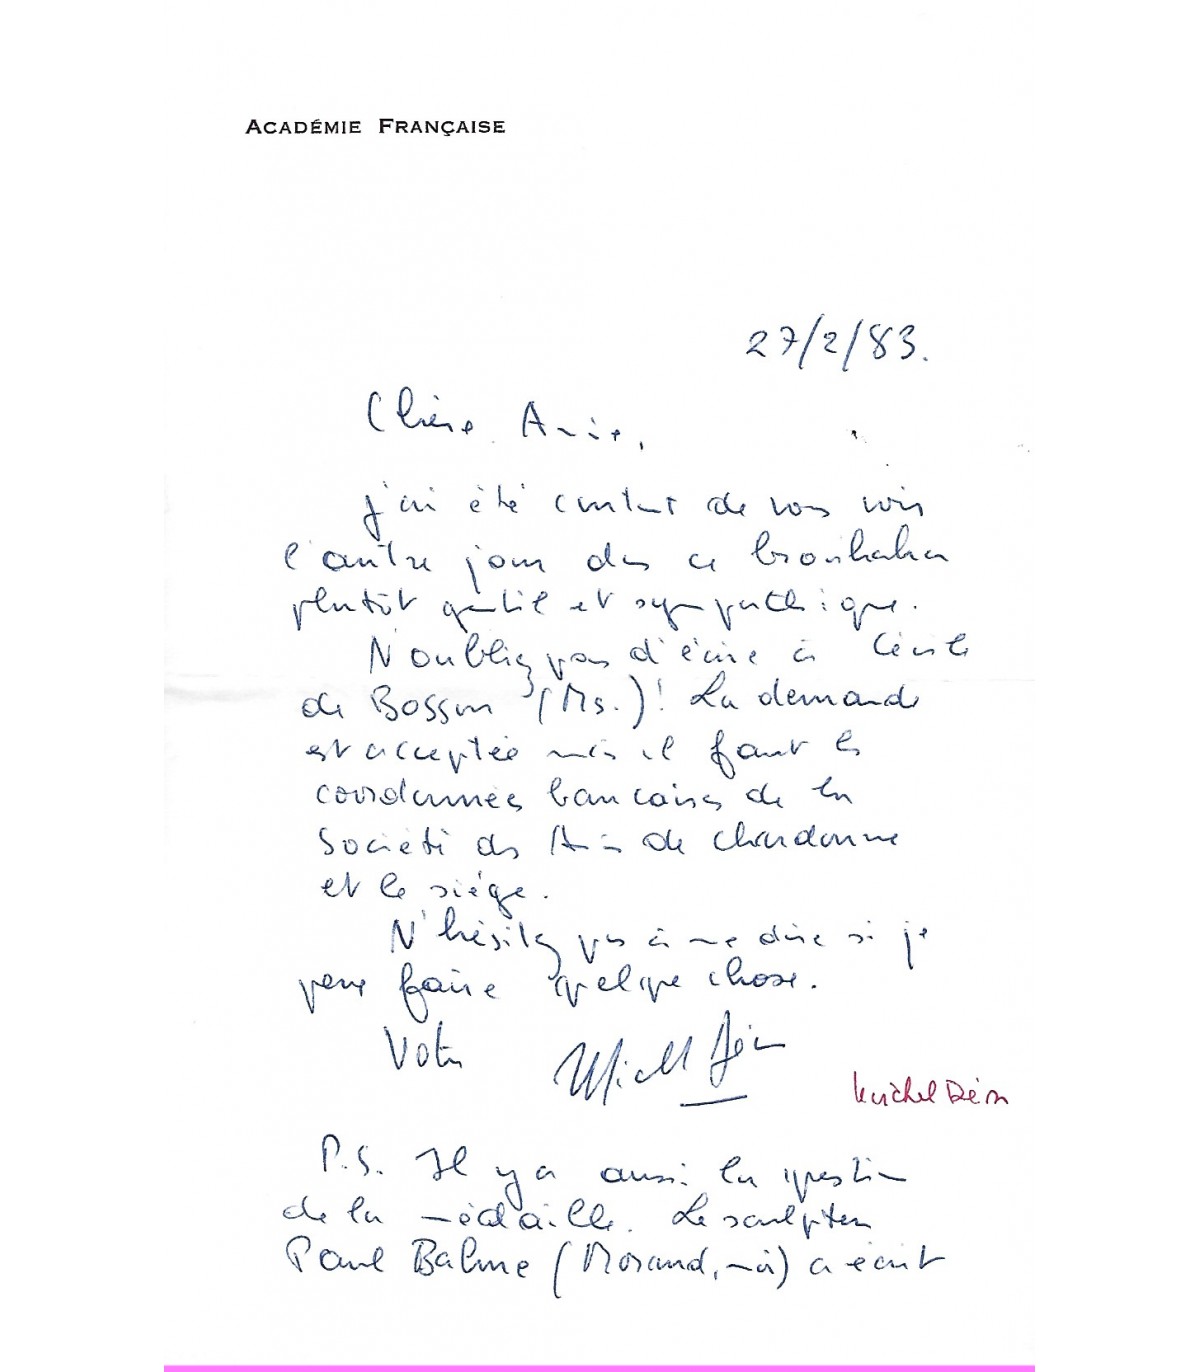 ACADÉMIE FRANÇAISE
27/2/83.
Chère Anie,
j'ai été content de vous voir
l'autre jour dans ce brouhaha
plutôt gentil et sympathique.
N'oubliez pas d'écrire à Cécile
de Bosson (Ms.)! La demande
est acceptée mais il faut les
coordonnées bancaires de la
Société des Amis de Chardonne
et le siège.
N'hésitez pas à me dire si je
peux faire quelque chose.
Votre Michel Déon
Michel Déon
P.S. Il y a aussi la question
de la médaille. Le sculpteur
Paul Balme (Morand, moi) a écrit